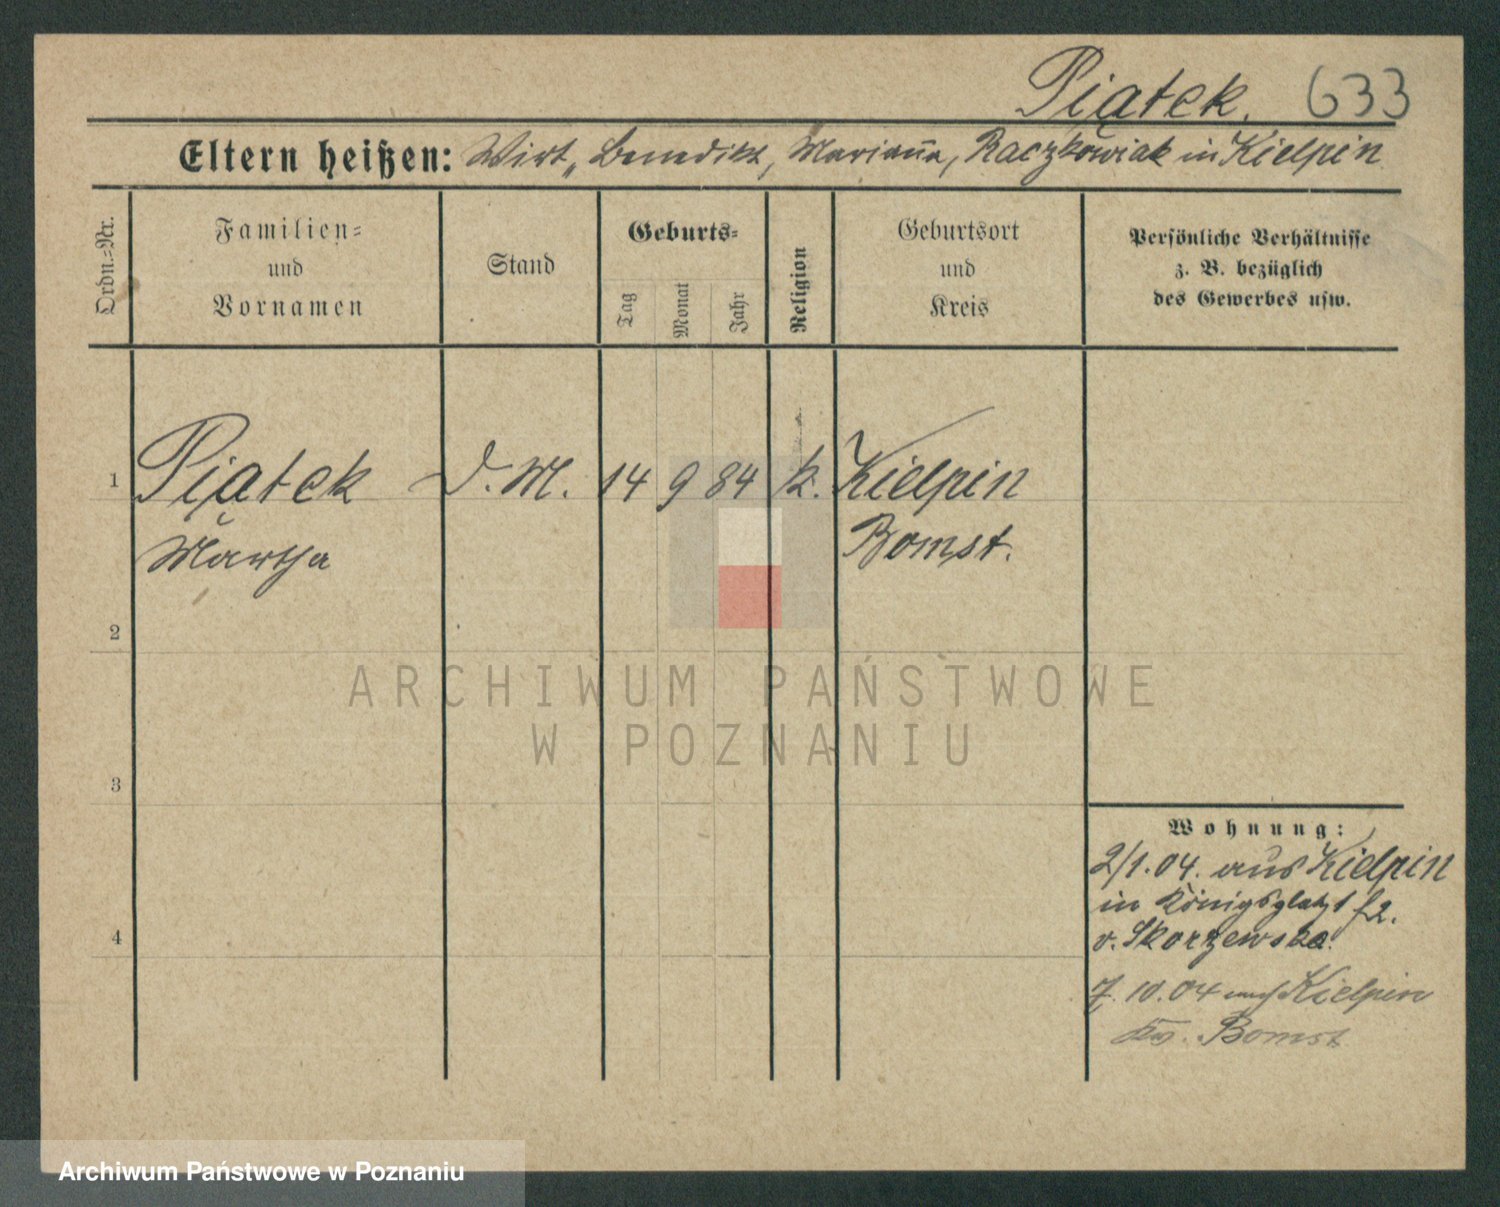 Piątek. 633
Eltern heißen: Wirt, Benedikt, Marianna, Raczkowiak in Kielpin
Ordn.-Nr.
Familien-
und
Vornamen
Stand
Geburts-
Tag
Monat
Jahr
Religion
Geburtsort
und
Kreis
Persönliche Verhältnisse
z. B. bezüglich
des Gewerbes usw.
1 Piątek D. M. 14 9 84 k. Kielpin
Martha Bomst.
2
ARCHIWUM PAŃSTWOWE
W POZNANIU
3
Wohnung:
2/1.04. aus Kielpin
in Königsplatz
4
v. Skorzewska.
7.10.04 nach Kielpin
Kr. Bomst
Archiwum Państwowe w Poznaniu